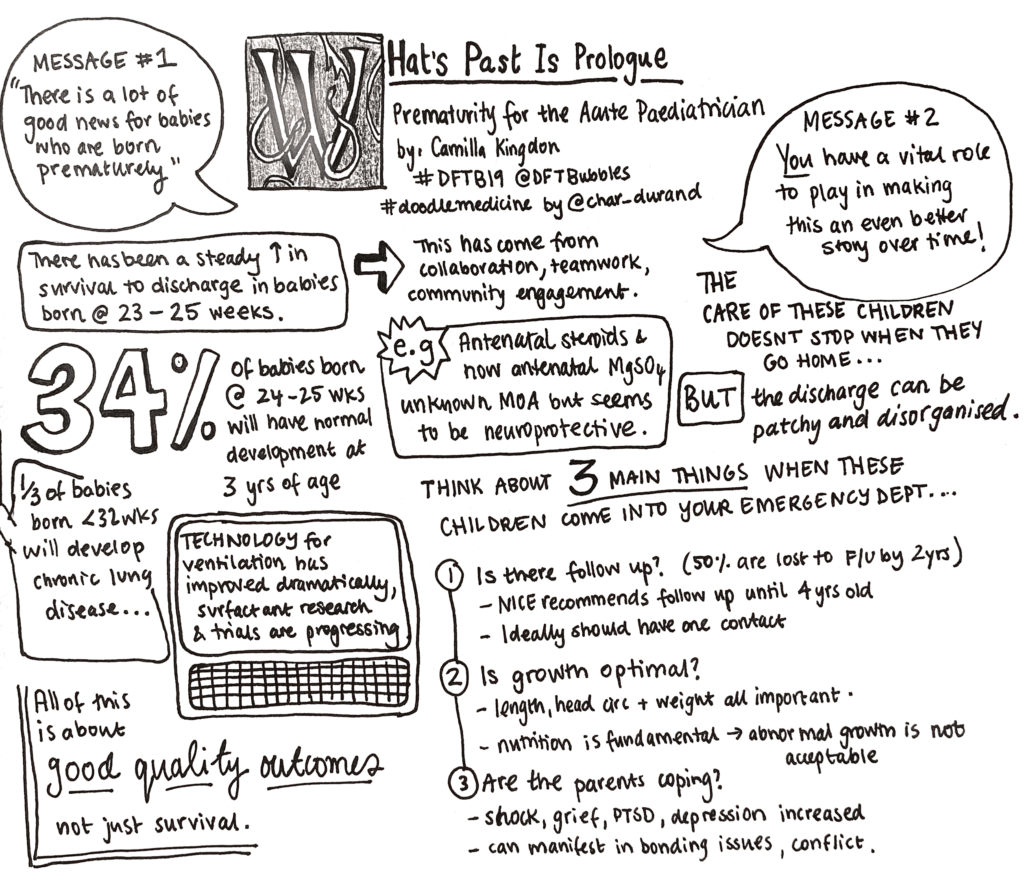 MESSAGE #1
"There is a lot of
good news for babies
who are born
prematurely"
WHat's Past Is Prologue
Prematurity for the Acute Paediatrician
by: Camilla Kingdon
#DFTB19 @DFTBubbles
#doodlemedicine by @char_durand
MESSAGE #2
You have a vital role
to play in making
this an even better
story over time!
There has been a steady ↑ in
survival to discharge in babies
born @ 23-25 weeks.
This has come from
collaboration, teamwork,
community engagement.
e.g
Antenatal steroids &
now antenatal MgSO4
unknown MOA but seems
to be neuroprotective.
THE
CARE OF THESE CHILDREN
DOESNT STOP WHEN THEY
GO HOME...
BUT the discharge can be
patchy and disorganised.
34%
of babies born
@ 24-25 wks
will have normal
development at
3 yrs of age
1/3 of babies
born <32wks
will develop
chronic lung
disease...
TECHNOLOGY for
ventilation has
improved dramatically,
surfactant research
& trials are progressing
All of this
is about
good quality outcomes
not just survival.
THINK ABOUT 3 MAIN THINGS WHEN THESE
CHILDREN COME INTO YOUR EMERGENCY DEPT....
1 Is there follow up? (50% are lost to F/U by 2yrs)
- NICE recommends follow up until 4 yrs old
- Ideally should have one contact
2 Is growth optimal?
- length, head circ + weight all important.
- nutrition is fundamental → abnormal growth is not
acceptable
3 Are the parents coping?
- shock, grief, PTSD, depression increased
- can manifest in bonding issues, conflict.